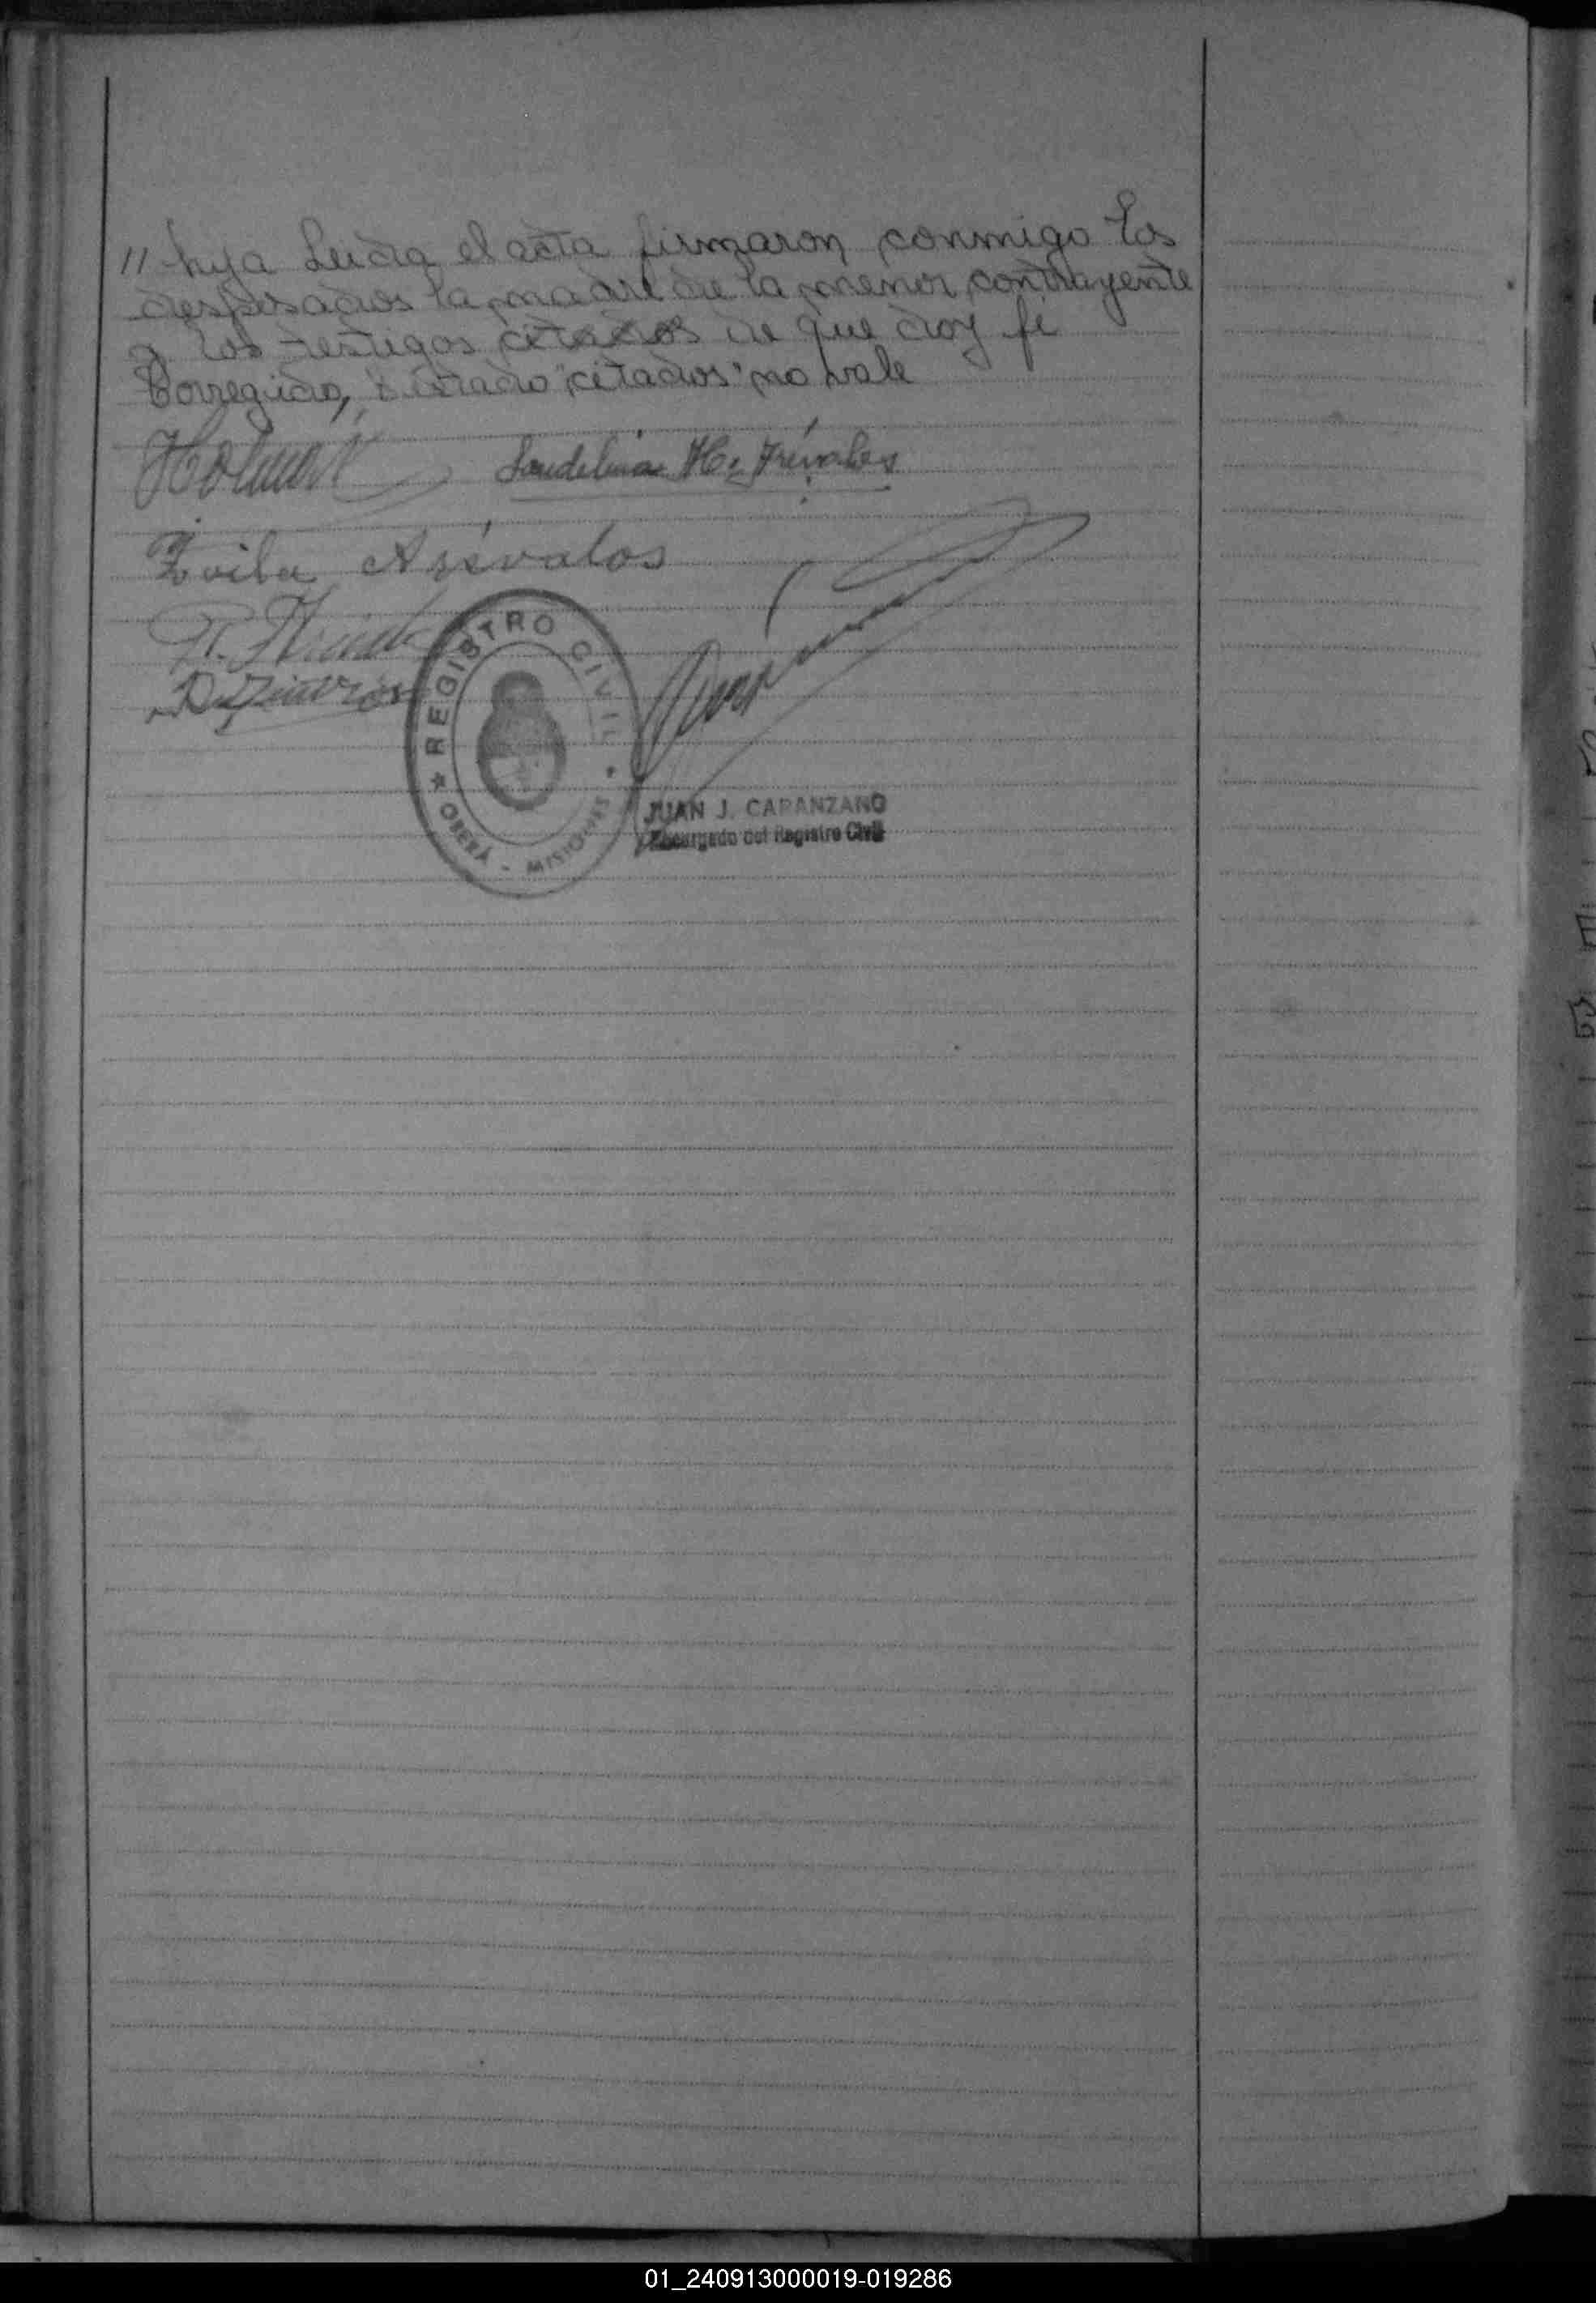 // hija Leida el acta firmaron conmigo los
desposados la madre de la menor contrayente
y los testigos citados de que doy fe
Corregido, "citados" no vale
Zoila Arévalos
REGISTRO CIVIL
OBERÁ - MISIONES
JUAN J. CAPANZANO
Encargado del Registro Civil
01_240913000019-019286